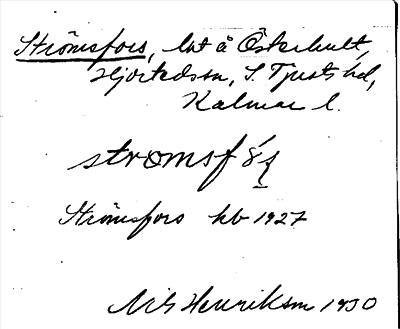 Strömsfors, lht å Österhult,
Hjorteds sn, S Tjusts hd,
Kalmar l.
strömsfå̤ʂ
Strömsfors kb 1927
Nils Henriksson 1930